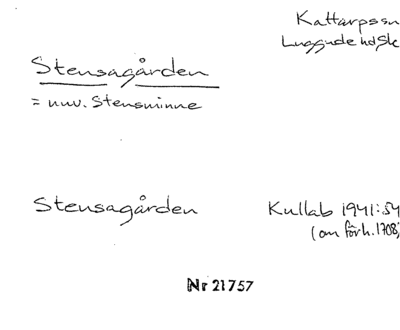 Kattarpssn
Luggude hd Sk
Stensagården
= nuv. Stensminne
Stensagården
Kullab 1941:54
(om förh. 1708)
Nr 21757